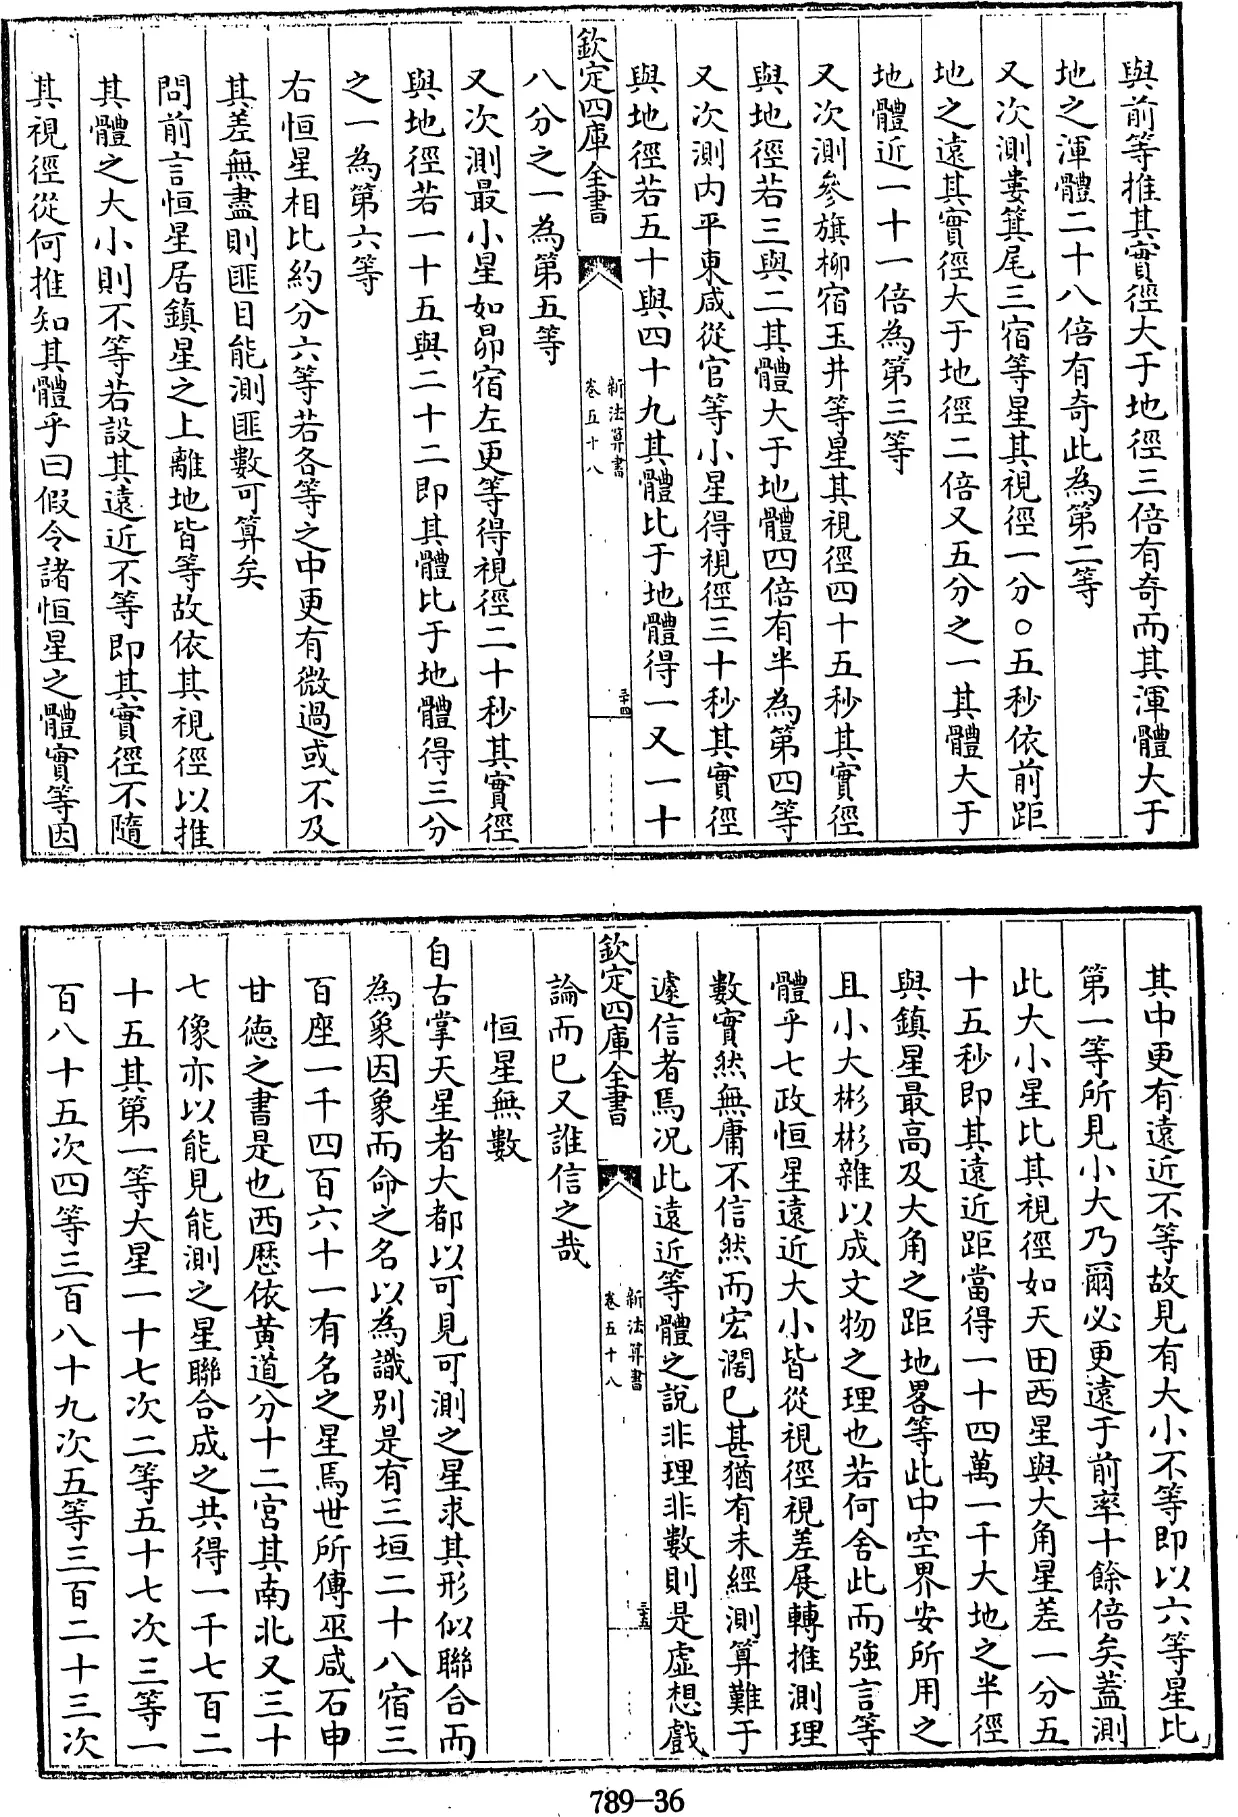 與前等推其實徑大于地徑三倍有奇而其渾體大于
地之渾體二十八倍有奇此為第二等
又次測婁箕尾三宿等星其視徑一分○五秒依前距
地之遠其實徑大于地徑二倍又五分之一其體大于
地體近一十一倍為第三等
又次測參旗柳宿玉井等星其視徑四十五秒其實徑
與地徑若三與二其體大于地體四倍有半為第四等
又次測内平東咸從官等小星得視徑三十秒其實徑
與地徑若五十與四十九其體比于地體得一又一十
欽定四庫全書
新法算書
卷五十八
三十四
八分之一為第五等
又次測最小星如昴宿左更等得視徑二十秒其實徑
與地徑若一十五與二十二即其體比于地體得三分
之一為第六等
右恒星相比約分六等若各等之中更有微過或不及
其差無盡則匪目能測匪數可算矣
問前言恒星居鎮星之上離地皆等故依其視徑以推
其體之大小則不等若設其遠近不等即其實徑不隨
其視徑從何推知其體乎曰假令諸恒星之體實等因
其中更有遠近不等故見有大小不等即以六等星比
第一等所見小大乃爾必更遠于前率十餘倍矣蓋測
此大小星比其視徑如天田西星與大角星差一分五
十五秒即其遠近距當得一十四萬一千大地之半徑
與鎮星最高及大角之距地畧等此中空界安所用之
且小大彬彬雜以成文物之理也若何舍此而強言等
體乎七政恒星遠近大小皆從視徑視差展轉推測理
數實然無庸不信然而宏濶已甚猶有未經測算難于
遽信者焉况此遠近等體之說非理非數則是虛想戲
欽定四庫全書
新法算書
卷五十八
三十五
論而已又誰信之哉
恒星無數
自古掌天星者大都以可見可測之星求其形似聯合而
為象因象而命之名以為識别是有三垣二十八宿三
百座一千四百六十一有名之星焉世所傳巫咸石申
甘徳之書是也西歴依黄道分十二宮其南北又三十
七像亦以能見能測之星聯合成之共得一千七百二
十五其第一等大星一十七次二等五十七次三等一
百八十五次四等三百八十九次五等三百二十三次
789-36